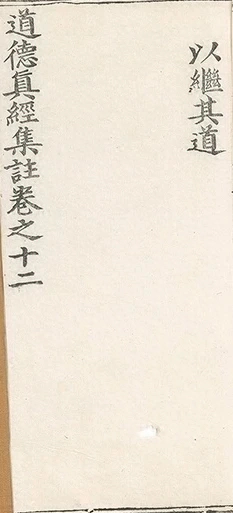 以繼其道
道德眞經集註卷之十二